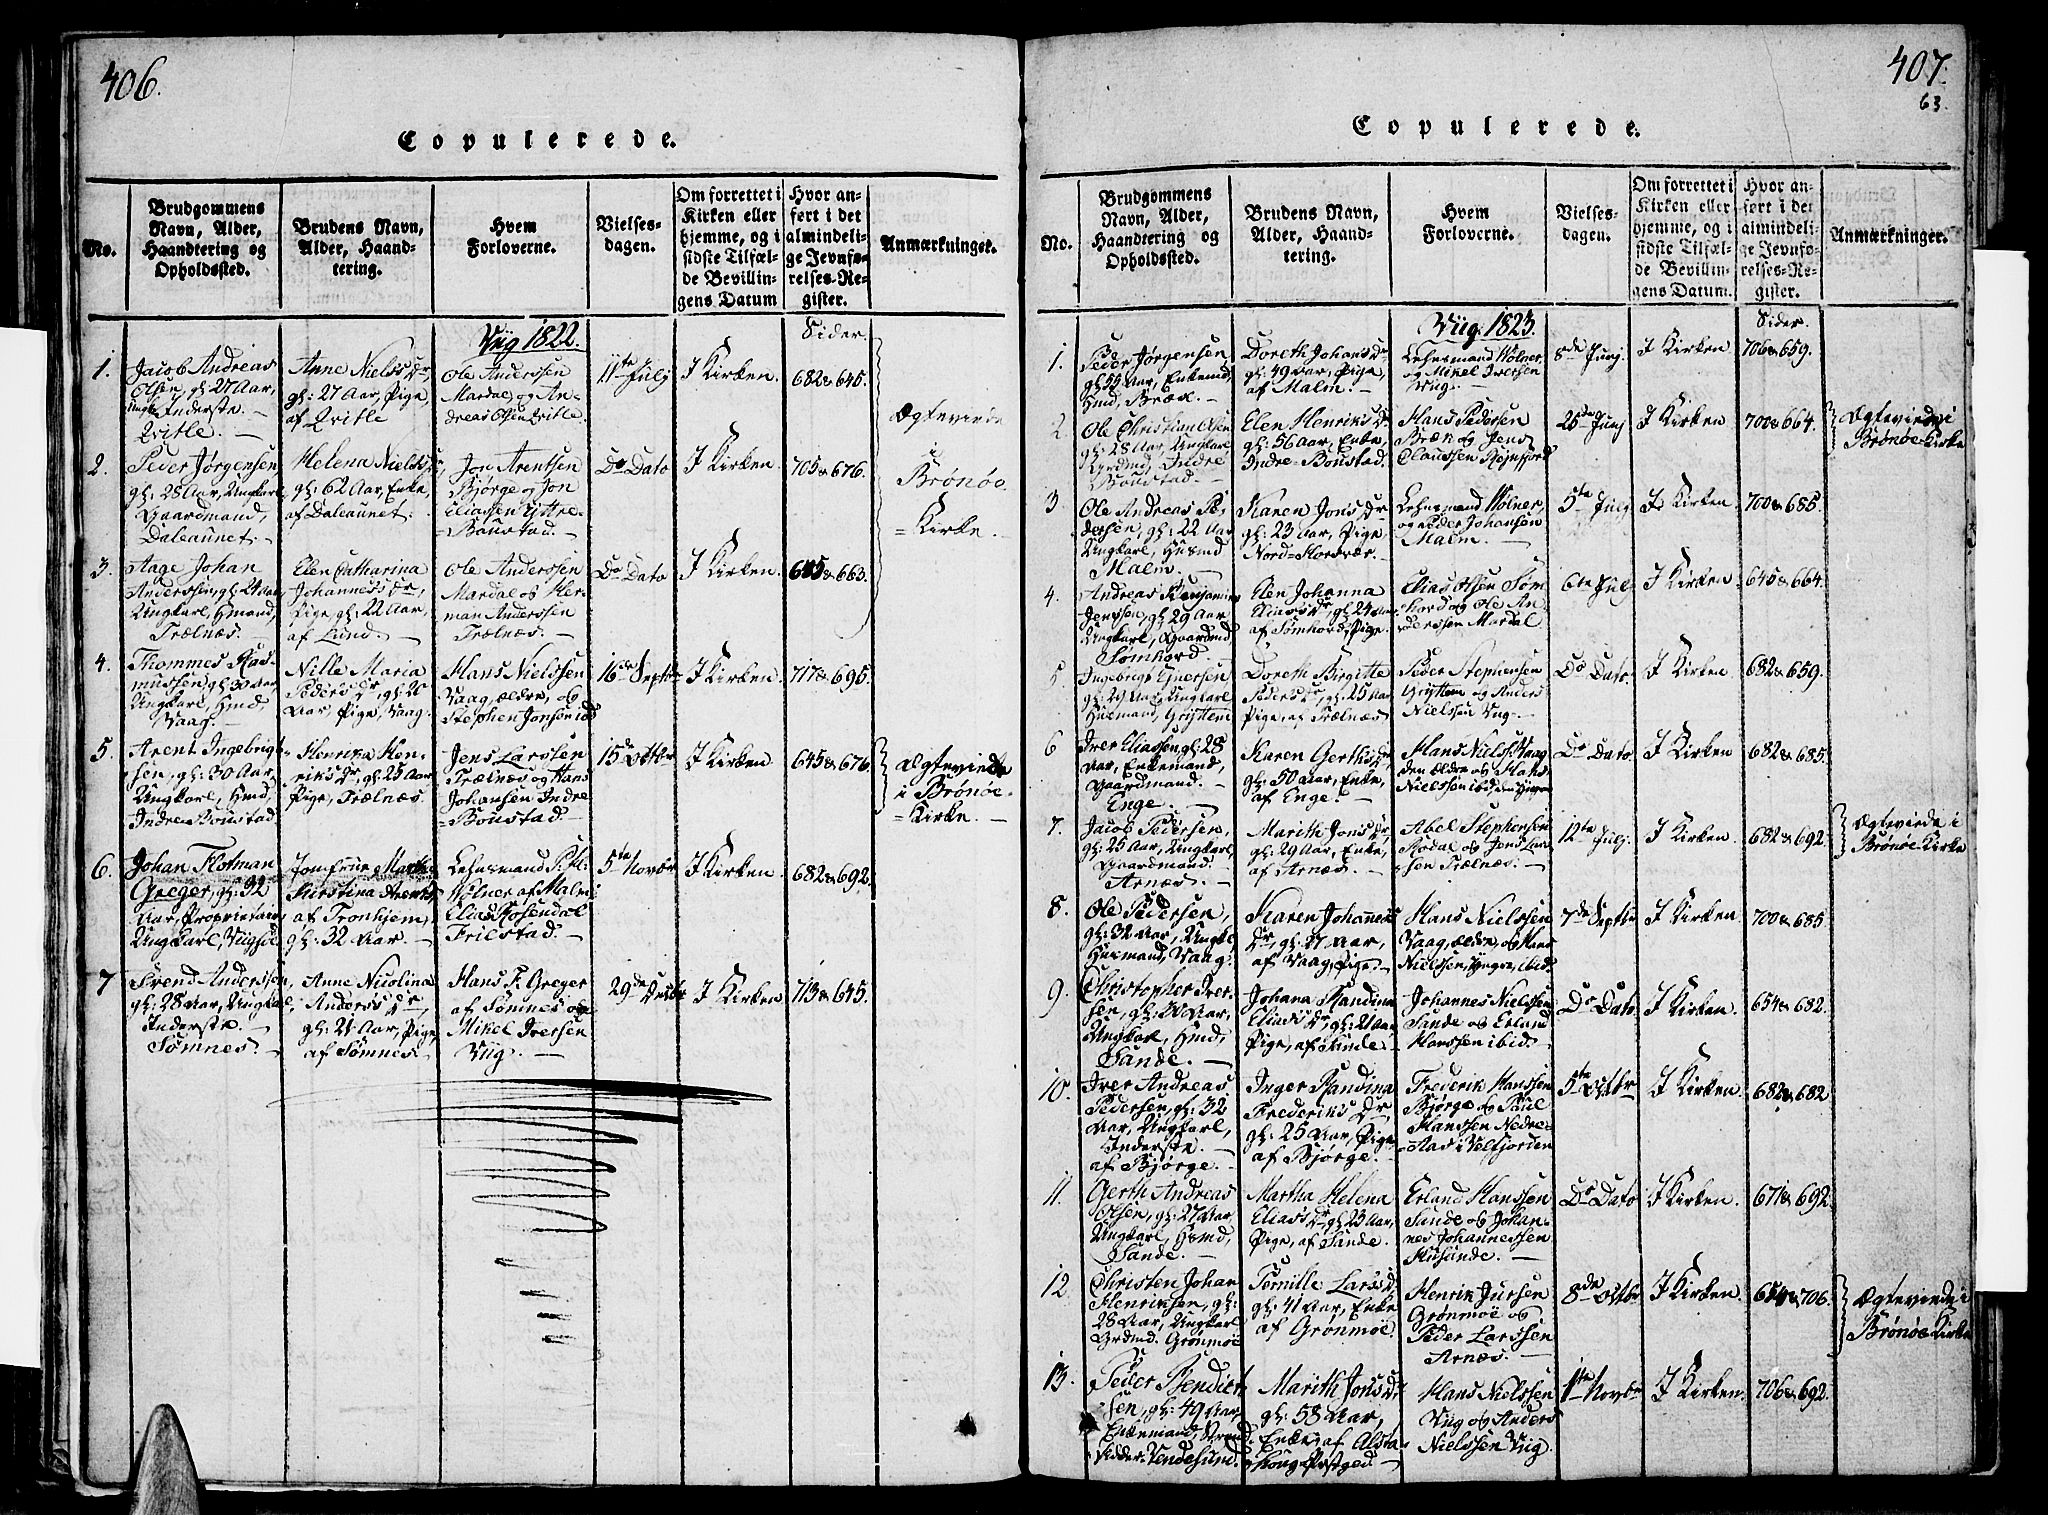 406.
Copulerede.
No.
Brudgommens
Navn, Alder,
Haandtering og
Opholdssted.
Brudens Navn,
Alder, Haand-
tering.
Hvem
Forloverne.
Vielses-
dagen.
Om forrettet i
Kirken eller
hjemme, og i
sidste Tilfæl-
de Bevillin-
gens Datum
Hvor an-
ført i det
almindeli-
ge Jevnfø-
relses-Re-
gister.
Anmærkninger.
Viig 1822.
Sider.
1.
Jacob Andreas
Olsen, gl: 27 Aar,
Inderste
Qvitle.
Anne Nielsdr,
gl: 27 Aar, Pige,
af Qvitle
Ole Anderssen
Mardal, og An-
dreas Olsen Qvitle.
11te Julj
I Kirken.
682 & 645.
Ægteviede
i
Brønøe
Kirke.
2.
Peder Jørgensen,
gl: 28 Aar, Ungkarl,
Gaardmand,
Daleaunet.
Helena Nielsdr,
gl: 62 Aar, Enke,
af Daleaunet.
Jon Arentsen
Bjørge og Jon
Eliassen Yttre
Boustad.
Do Dato
I Kirken
705 & 676.
3.
Aage Johan
Anderssen, gl: 24 Aar
Ungkarl, Hmand,
Trælnæs.
Elen Catharina
Johannesdr,
Pige, gl: 22 Aar,
af Lund.
Ole Anderssen
Mardal og Her-
man Anderssen
Trælnæs.
Do Dato
I Kirken
685 & 663.
4.
Thommes Ras-
mussen, gl: 30 Aar,
Ungkarl, Hmd,
Vaag.
Nille Maria
Pedersdr, gl: 20
Aar, Pige, Vaag.
Hans Nielssen
Vaag, ældre, og
Stephen Jonsen ibd
16de Septr
I Kirken
717 & 695.
5.
Arent Ingebrigt-
sen, gl: 30 Aar,
Ungkarl, Hmd,
Indre Boustad
Henrika Hen-
riksdr, gl: 25 Aar
Pige, Trælnæs.
Jens Larssen
Trælnæs og Hans
Johansen Indre
Boustad.
15de Octbr
I Kirken
645 & 676.
Ægteviede
i Brønøe
Kirke.
6.
Johan Flotman
Greger, gl: 32
Aar, Proprietair,
Ungkarl, Viigsøe
Jomfrue Martha
Kirstina Arentz
af Tronhjem,
gl: 32 Aar.
Lehnsmand P. M.
Wolner af Malm
Elias Rosendal
Frilstad.
5te Novbr
I Kirken
682 & 692.
7
Svend Anderssen,
gl: 28 Aar, Ungkarl,
Inderste.
Sømnes.
Anne Nicolina
Andersdr,
gl: 21 Aar, Pige,
af Sømnes.
Hans F. Greger
af Sømnes og
Mikel Iversen
Viig.
29de Decbr
I Kirken
713 & 645.
407.
63.
Copulerede.
No.
Brudgommens
Navn, Alder,
Haandtering og
Opholdssted.
Brudens Navn,
Alder, Haand-
tering.
Hvem
Forloverne.
Vielses-
dagen.
Om forrettet i
Kirken eller
hjemme, og i
sidste Tilfæl-
de Bevillin-
gens Datum.
Hvor an-
ført i det
almindeli-
ge Jevnfø-
relses-Re-
gister.
Anmærkninger.
Viig. 1823.
Sider.
1.
Peder Jørgensen
gl: 55 Aar, Enkemd,
Hmd, Bræk.
Doreth Johansdr
gl: 49 Aar, Pige,
af Malm.
Lehnsmand Wolner
og Mikel Iversen
Viig.
8de Junj.
I Kirken
706 & 659.
2.
Ole Christian Olsen
gl: 28 Aar, Ungkarl,
Grdmd, Indre
Boustad.
Elen Henriksdr
gl: 56 Aar, Enke,
Indre Boustad.
Hans Pedersen
Bræk og Jens
Claussen Reinfjord
25de Junj
I Kirken
700 & 664.
Ægteviede i
Brønøe Kirke
3
Ole Andreas Pe-
dersen, gl: 22 Aar
Ungkarl, Husmd
Malm.
Karen Jonsdr
gl: 23 Aar, Pige,
Nord-Horsvær.
Lehnsmand Wolner,
og Peder Johansen
Malm.
5te Julj
I Kirken
700 & 685.
4.
Andreas Benjamin
Jenssen, gl: 29 Aar
Ungkarl, Gaardmd
Sømhord.
Elen Johanna
Eliasdr, gl: 24 Aar
af Sømhord, Pige.
Elias Olsen Søm-
hord og Ole An-
derssen Mardal
6te Julj
I Kirken
645 & 664.
5
Ingebrigt Ejnersen
gl: 29 Aar, Ungkarl
Husmand, Gryttem
Doreth Birgitte
Pedersdr, gl: 25 Aar
Pige, af Trælnæs
Peder Stephensen
Gryttem og Anders
Nielssen Viig.
Do Dato.
I Kirken
682 & 659.
6
Iver Eliassen, gl: 28
Aar, Enkemand,
Gaardmand.
Enge.
Karen Gerthsdr
gl: 50 Aar, Enke,
af Enge.
Hans Nielss: Vaag
den ældre og Hans
Nielssen ibid den Yngre
Do Dato.
I Kirken
682 & 685.
7.
Jacob Pedersen,
gl: 25 Aar, Ungkarl,
Gaardmand.
Arnæs.
Marith Jonsdr,
gl: 29 Aar, Enke,
af Arnæs.
Abel Stephensen
Mardal og Jens Lar-
sen Trælnæs.
12te Julj.
I Kirken
682 & 692.
Ægteviede i
Brønøe Kirke
8.
Ole Pedersen,
gl: 32 Aar, Ungkl,
Husmand, Vaag.
Karen Johannes
Dr, gl: 27 Aar,
af Vaag, Pige.
Hans Nielssen
Vaag, ældre, og Hans
Nielssen, Yngre, ibid.
7de Septbr
I Kirken
700 & 685.
9.
Christopher Iver-
sen, gl: 20 Aar,
Ungkarl, Hmd,
Sande.
Johana Randina
Eliasdr, gl: 21 Aar
Pige, af Skinde
Johannes Nielssen
Sande og Erland
Hanssen ibid.
Do Dato
I Kirken
654 & 682.
10.
Iver Andreas
Pedersen, gl: 32
Aar, Ungkarl,
Inderste.
af Bjørge.
Inger Randina
Frederiksdr,
gl: 25 Aar, Pige,
af Bjørge.
Frederik Hanssen
Bjørge og Paul
Hanssen Nedre
Aas i Velfjorden
5te Octbr
I Kirken
682 & 682
11.
Gerth Andreas
Olsen, gl: 27 Aar,
Ungkarl, Hsmd,
Sande.
Martha Helena
Eliasdr gl: 23 Aar,
Pige, af Sande.
Erland Hanssen
Sande og Johan-
nes Johannessen
Husunde.
Do Dato
I Kirken.
671 & 692.
12.
Christen Johan
Henriksen, gl:
28 Aar, Ungkarl
Grdmd. Grønmøe
Pernille Larsdr
gl: 41 Aar, Enke
af Grønmøe
Henrik Jursen
Grønmøe og
Peder Larssen
Arnæs.
8de Octbr
I Kirken.
654 & 706.
Ægteviede i
Brønøe Kirke
13.
Peder Bendict-
sen, gl: 49 Aar,
Enkemand, Strand-
sidder. Vendesund.
Marith Jonsdr
gl: 58 Aar,
Enke, af Alsta-
houg Præstgield
Hans Nielssen
Viig og Anders
Nielssen Viig.
1te Novbr
I Kirken.
706 & 692.